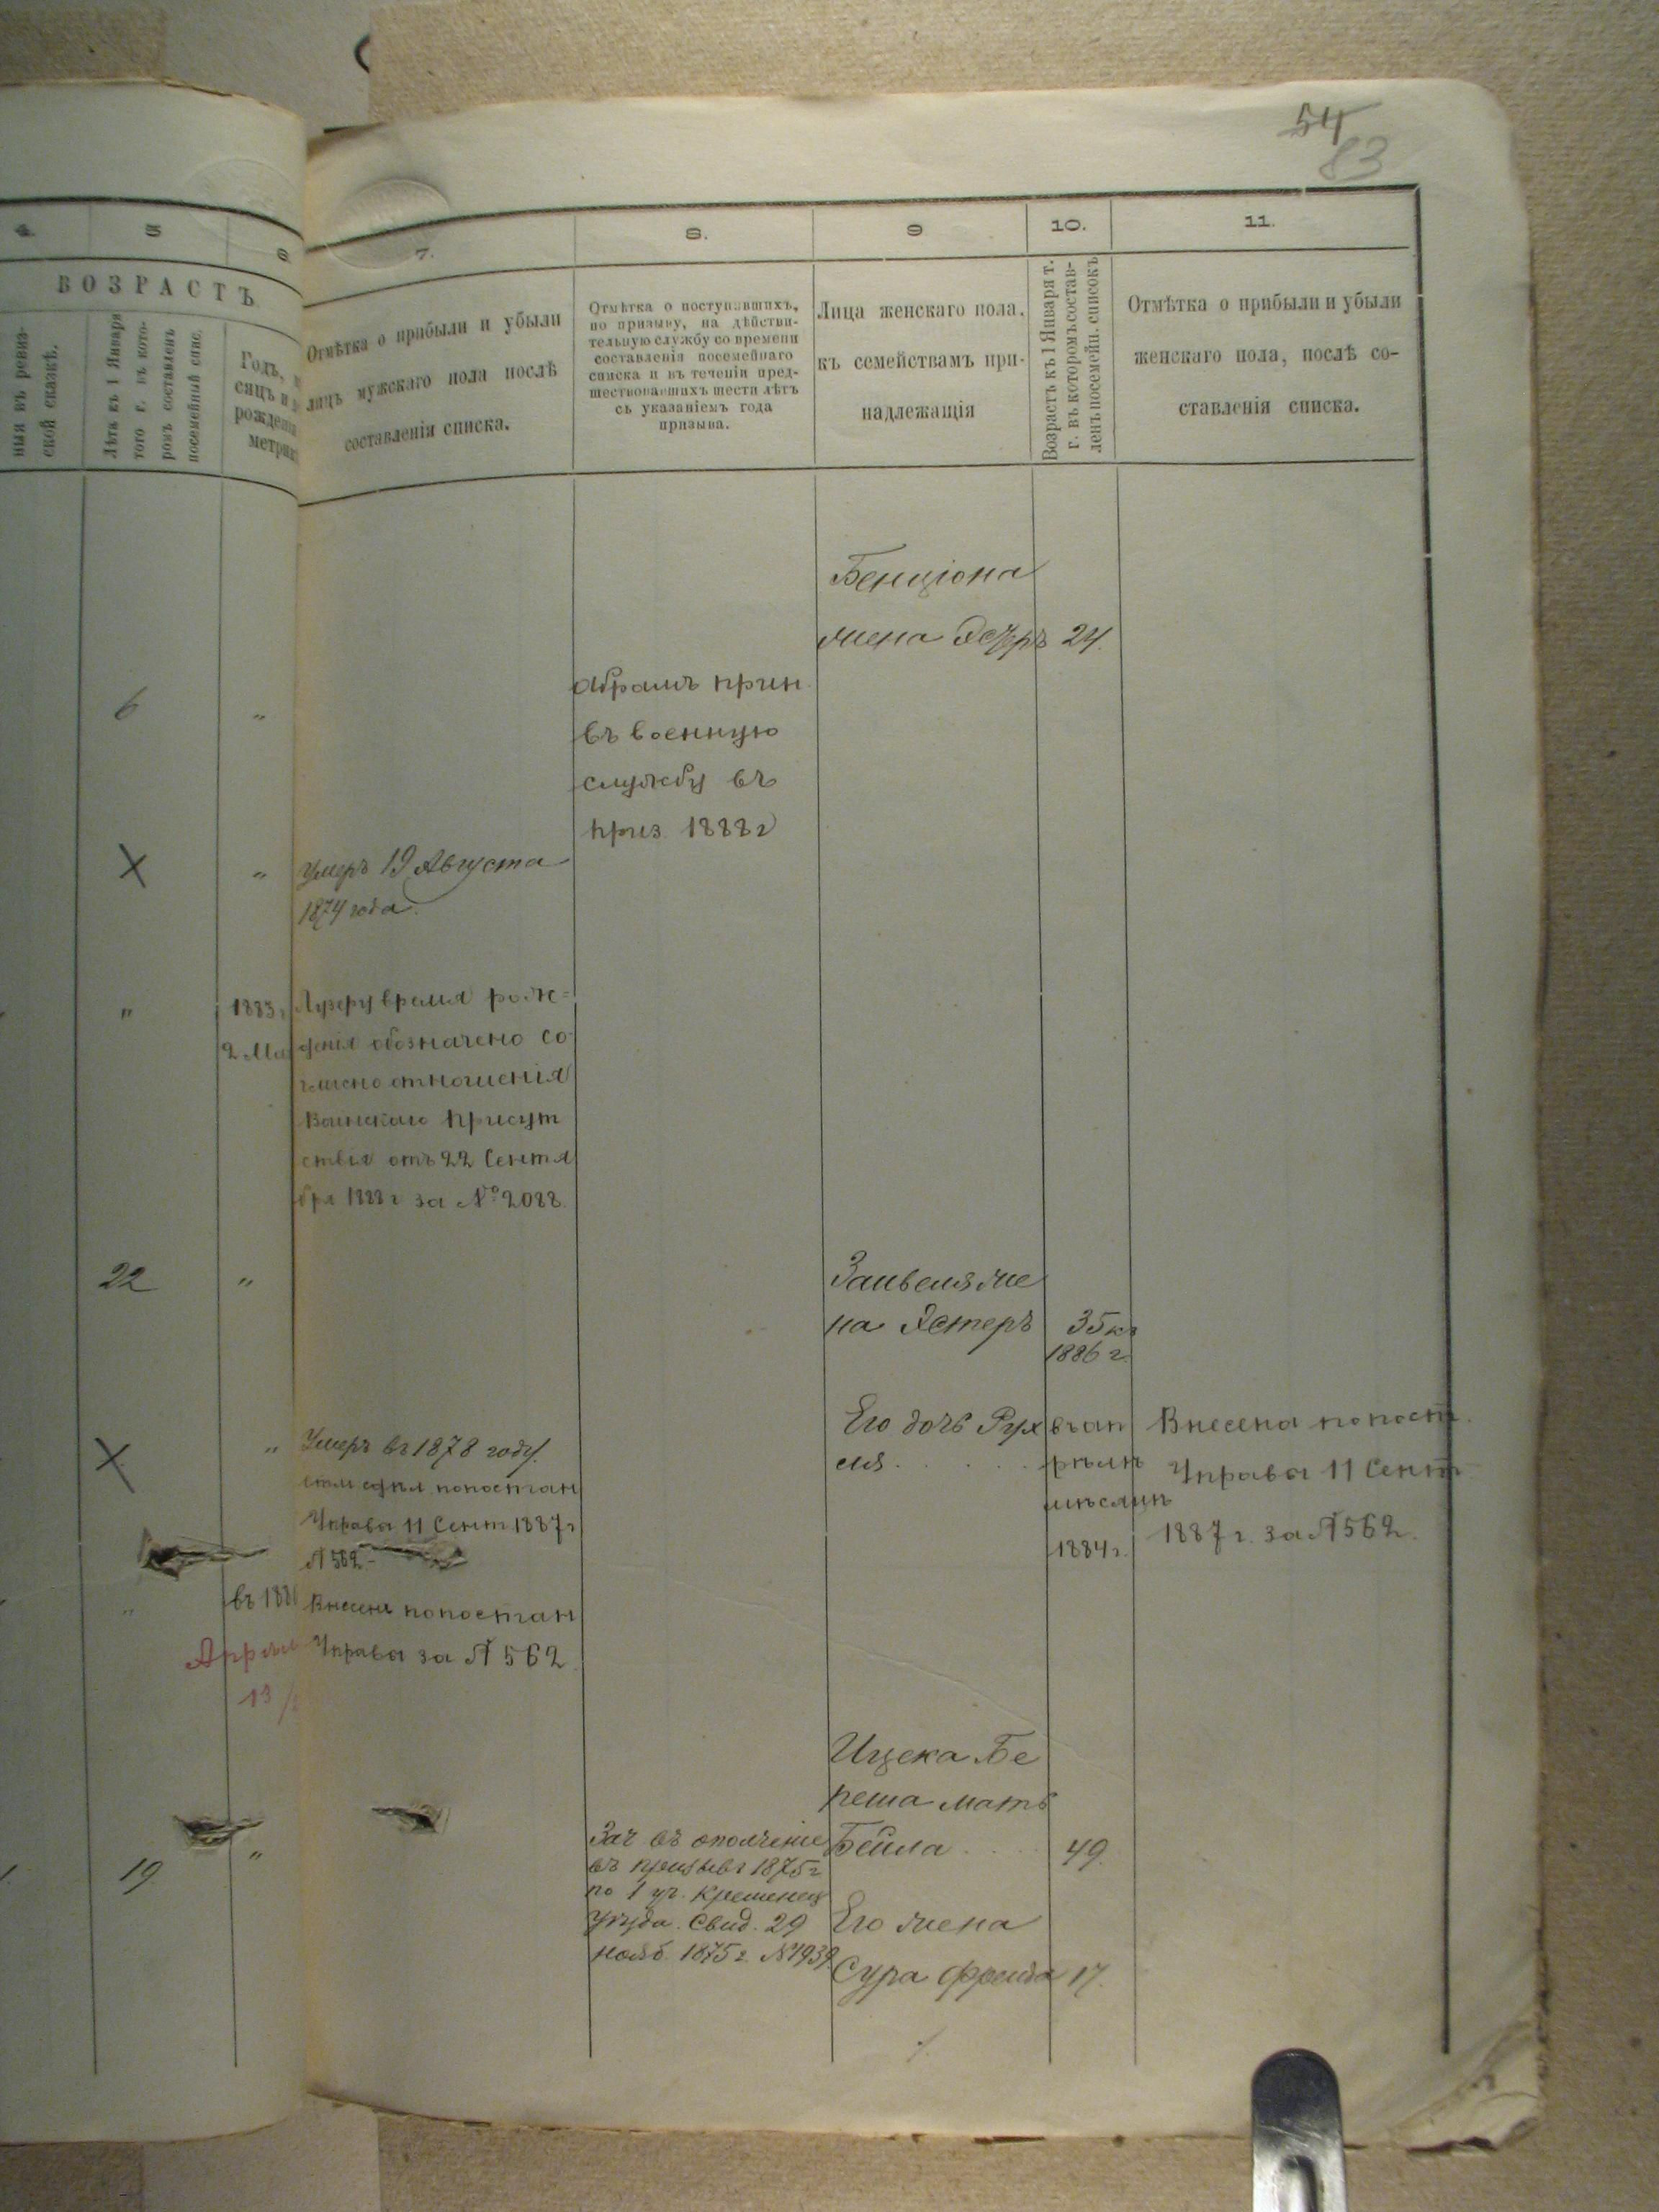 54
83
4.
5
6
7.
8.
9
10.
11.
ВОЗРАСТЪ
ныя въ ревиз-
ской сказкѣ.
Лѣта къ 1 Января
того г. въ кото-
ромъ составленъ
посемейный спис.
Годъ,
сяцъ и
рожденія
метрик
Отмѣтка о прибыли и убыли
лицъ мужскаго пола послѣ
составленія списка.
Отмѣтка о поступившихъ,
по призыву, на дѣйстви-
тельную службу со времени
составленія посемейнаго
списка и въ теченіи пред-
шествовавшихъ шести лѣтъ
съ указаніемъ года
призыва.
Лица женскаго пола,
къ семействамъ при-
надлежащія
Возрастъ къ 1 Января т.
г. въ которомъ состав-
ленъ посемейн. списокъ
Отмѣтка о прибыли и убыли
женскаго пола, послѣ со-
ставленія списка.
Бенціона
жена Эстеръ 24.
6 "
Абрамъ прин.
въ военную
службу въ
приз. 1888 г
X " Умеръ 19 Августа
1874 года.
" 1883 г Лузеру время рож=
2 Ма денія обозначено со-
гласно отношенія
Воинскаго Присут
ствія отъ 22 Сентя
бря 1888 г за № 2088.
22 "
Занвеля же
на Эстеръ 35 къ
1886 г.
Его дочь Рух въ ап
ля рѣлѣ
мѣсяцѣ
1884 г.
Внесена попост.
Управы 11 Сент
1887 г. за № 562.
X " Умеръ въ 1878 году.
попостан
Управы 11 Сент. 1887 г
№ 562
" въ 188 Внесенъ попостан
Апрѣл Управы за № 562.
13
Ицека Бе
реша мать
Бейла 49.
19 "
Зач въ ополченіе
въ призывъ 1875 г
по 1 уч. Кременец
Уѣзда. Свид. 29
нояб. 1875 г. № 1939.
Его жена
Сура Фрейда 17.